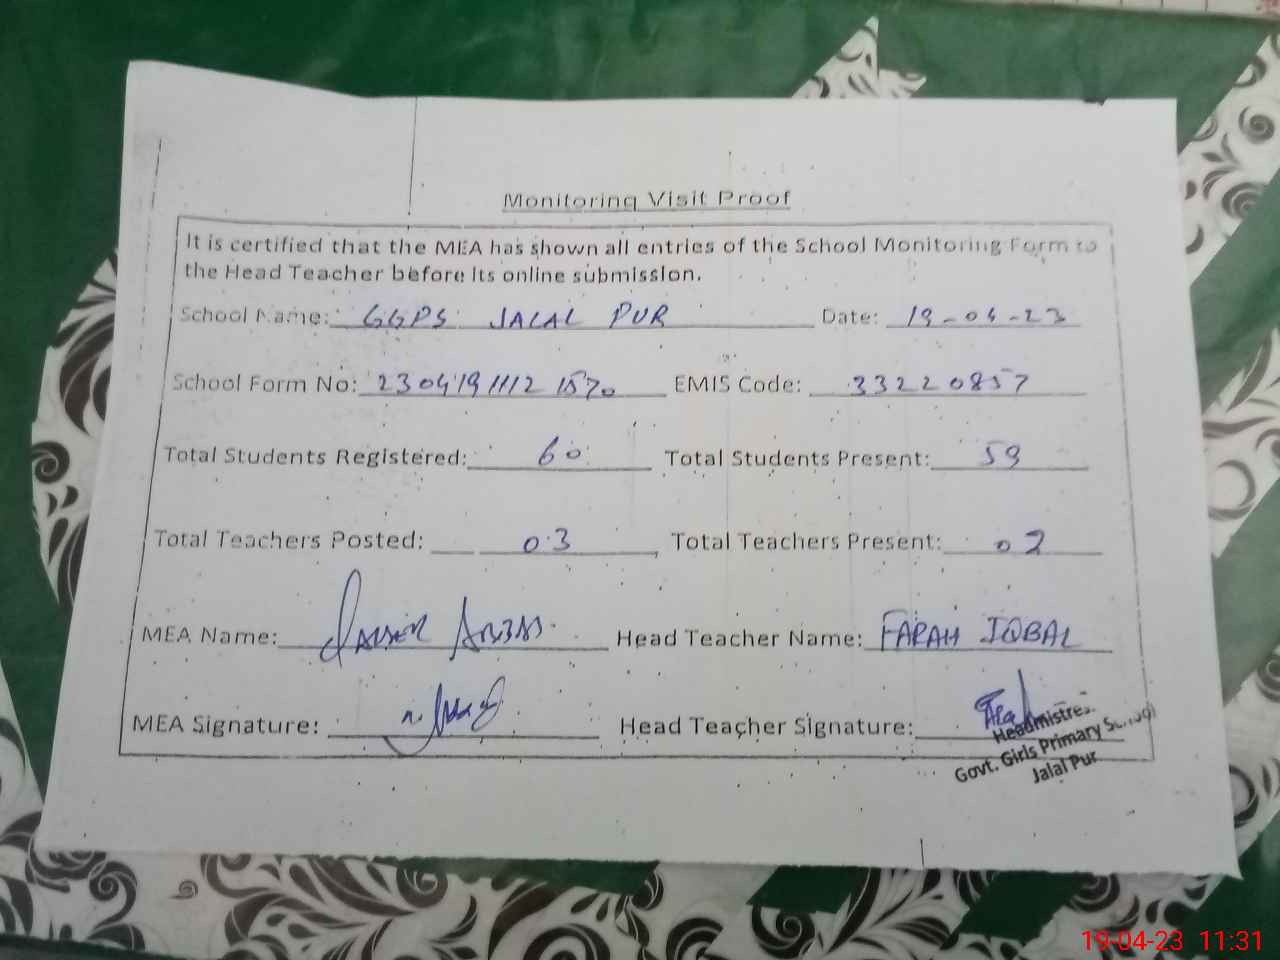 Monitoring Visit Proof
It is certified that the MEA has shown all entries of the School Monitoring Form to
the Head Teacher before its online submission.
School Name: GGPS JALAL PUR Date: 19-04-23
School Form No: 2304191112 1570 EMIS Code: 33220857
Total Students Registered: 60 Total Students Present: 59
Total Teachers Posted: 03 Total Teachers Present: 02
MEA Name: Head Teacher Name: FARAH IQBAL
MEA Signature: Head Teacher Signature:
Headmistress
Govt. Girls Primary School
Jalal Pur
19-04-23 11:31